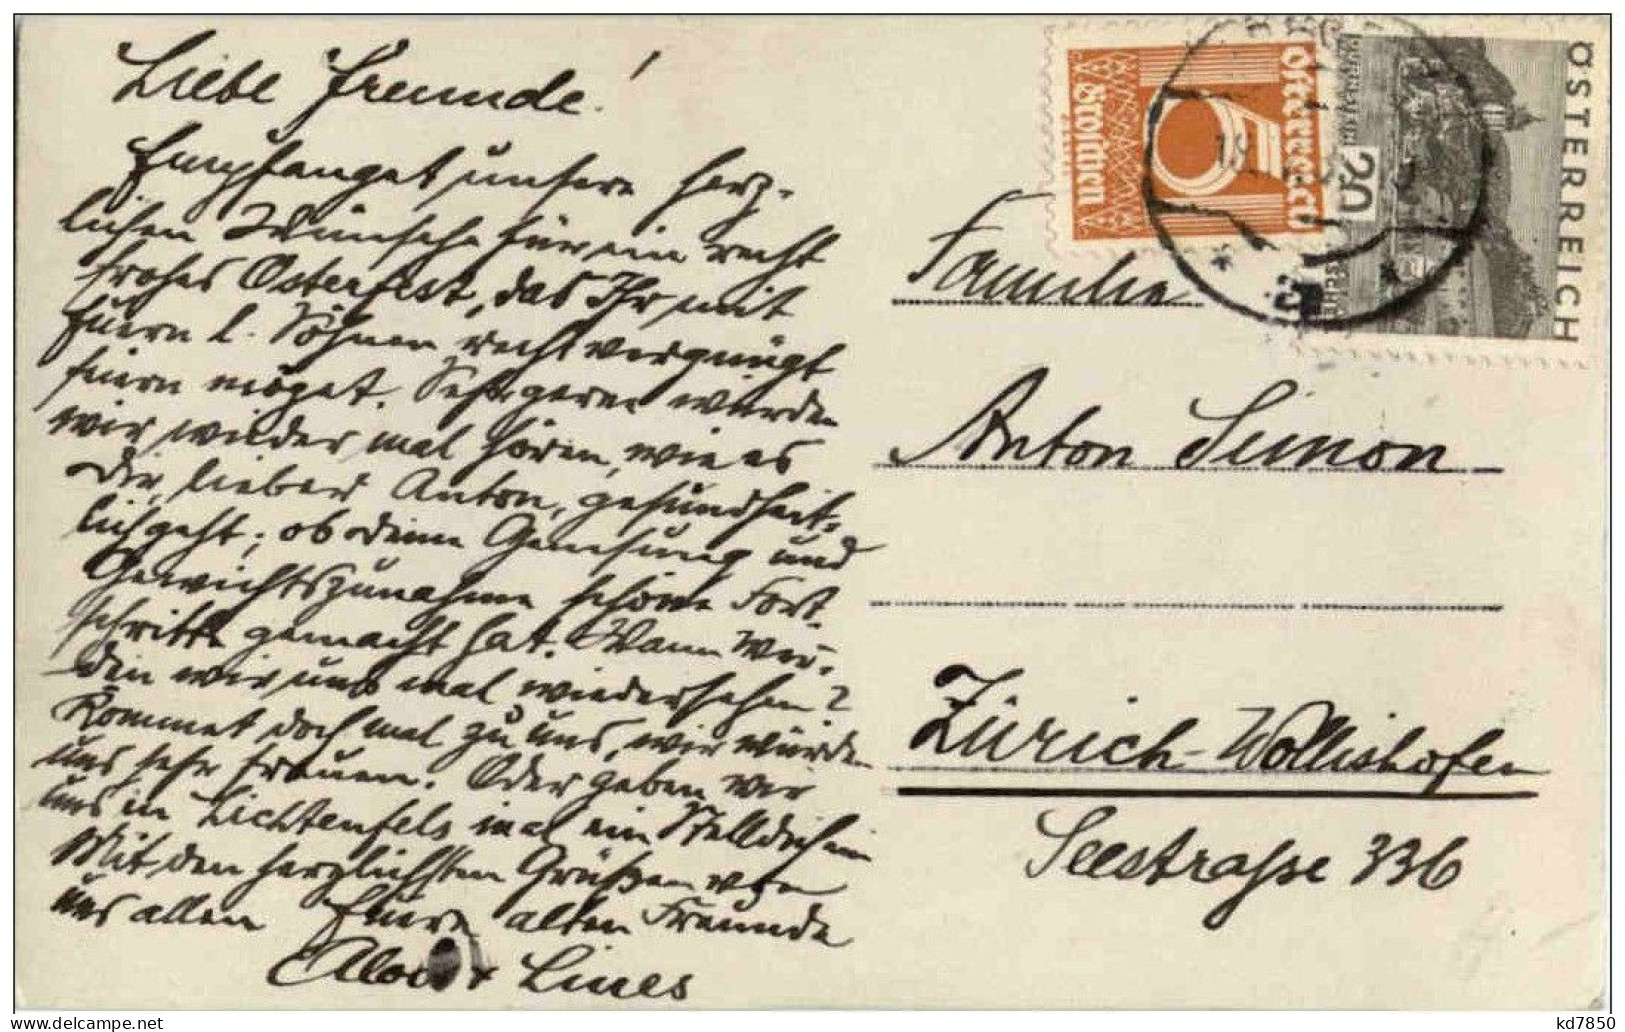 Liebe Freunde!
Empfanget unsere herz-
lichen Wünsche für ein recht
frohes Osterfest, das Ihr mit
Euern l. Söhnen recht vergnügt
feiern möget. Sehr gerne würden
wir wieder mal hören, wie es
Dir, lieber Anton, gesundheit-
lich geht; ob Deine Genesung und
Gewichtszunahme schöne Fort-
schritte gemacht hat. Wann wer-
den wir uns mal wiedersehen?
Kommet doch mal zu uns, wir würden
uns sehr freuen. Oder geben wir
uns in Lichtenfels mal ein Stelldichein
Mit den herzlichsten Grüßen von
uns allen Euere alten Freunde
Alois + Lines
Österreich
5
Groschen
ÖSTERREICH
20
DÜRNSTEIN
Familie
Anton Simon
Zürich-Wollishofen
Seestraße 336
kd7850